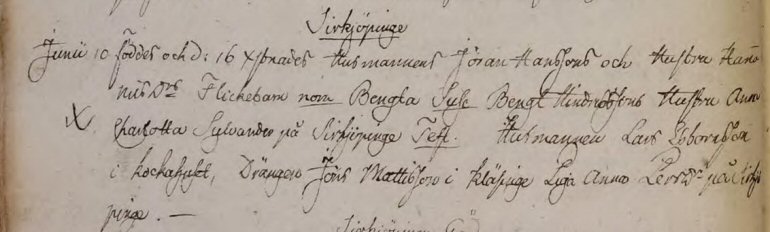 Sirkjöpinge
Junii 10 föddes och d: 16 Xstnades Husmannens Jöran Hanssons och Hustru Han-
nas Dr Flickebarn nom Bengta Susc Bengt Hindrikssons Hustru Anna
X Charlotta Sylvander på Sirkjöpinge Test. Husmannen Lars
i Drängen Jöns Mattisson i Kläsinge Piga Anna Persdr på Sirkjö
pinge. —
Sirkjöpinge